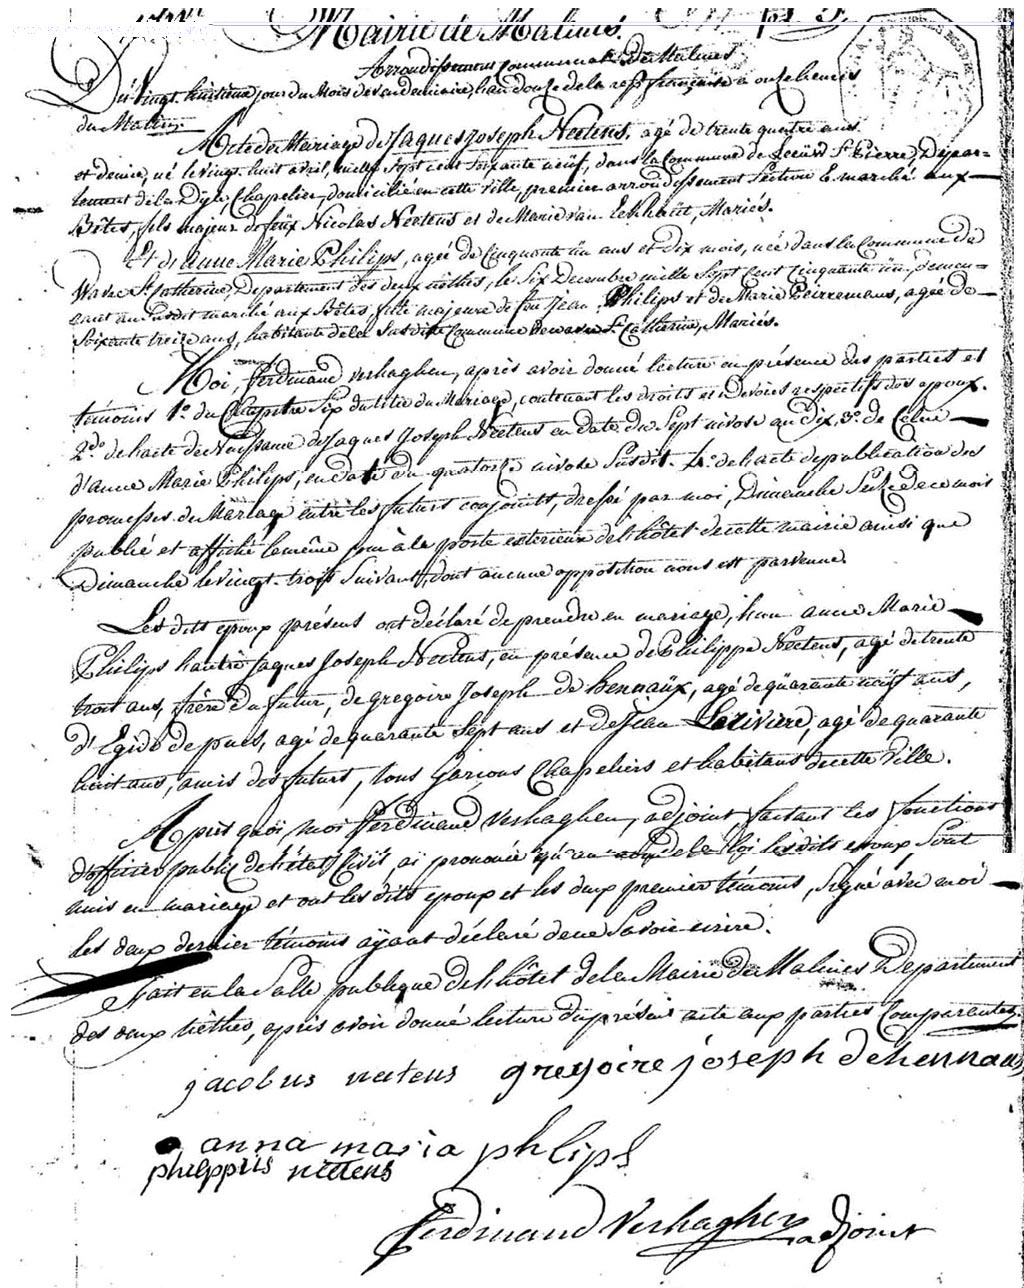 Mairie de Malines.
Arrondissement Communal De Malines
Du vingt huitieme jour du Mois de vendemiaire, l'an douze de la rep. françoise a onze heures
du Matin.
Acte de Mariage de Jaques Joseph Neetens, agé de trente quatre ans
et demie, né le vingt huit avril, mille Sept cent soixante neuf, dans la Commune de Leeuw St Pierre, Depar-
tement de la Dyle Chapelier, domicilié en cette ville, premier arrondissement Section E. marché aux
Bêtes, fils majeur de feüx Nicolas Neetens et de Marie van Eekhaüt, Mariés.
Et d'anne Marie Philips, agée de Cinquante un ans et dix mois, née dans la Commune de
Wavre St Catherine, Departement des deux nethes, le Six Decembre mille Sept Cent Cinquante un, demeu-
rant au susdit marché aux Bêtes, fille majeure de feu Jean Philips et de Marie Peirremans, agée de
Soixante treize ans, habitante de la Susdite Commune de wavre St Catherine, Mariés.
Moi, ferdinand verhaghen, après avoir donné lecture en présence des parties et
témoins 1.º du Chapitre Six du titre du Mariage, contenant les droits et devoirs respectifs des epoux.
2º de l'acte de Naissance de Jaques Joseph Neetens en date du Sept nivose an Dix, 3.º de Celui
d'anne Marie Philips, en date du quatorze nivose Susdit. 4.º de l'acte de publication des
promesses de Mariage entre les futurs conjoints, dressé par moi, Dimanche Seize de ce mois
publié et affiché le même jour à la porte exterieure de l'hôtel de cette mairie ainsi que
Dimanche le vingt trois Suivant, dont aucune opposition nous est parvenue.
Les dits epoux présens ont déclaré de prendre en mariage, l'un anne Marie
Philips l'autre Jaques Joseph Neetens, en présence de Philippe Neetens, agé de trente
trois ans, frère du futur, de gregoire Joseph de hennaüx, agé de qüarante neüf ans,
d'Egide de pues, agé de quarante Sept ans et de Jean Lariviere, agé de quarante
huit ans, amis des futurs, tous Garçons Chapeliers et habitans de cette Ville.
Après quoi, moi ferdinand verhaghen, adjoint faisant les fonctions
d'officier public de l'état Civil ai prononcé qu'au nom de la Loi les dits epoux Sont
unis en mariage et ont les dits epoux et les deux premier témoins, Signé avec moi
les deux dernier témoins aÿant déclaré de ne Savoir ecrire.
Fait en la Salle publique de l'hôtel de la Mairie de Malines Departement
des deux nethes, après avoir donné lecture du présent acte aux parties Comparentes.
jacobus netens gregoire joseph dehennaux
anna maria phlips
phileppus nettens
Ferdinand Verhaghen adjoint